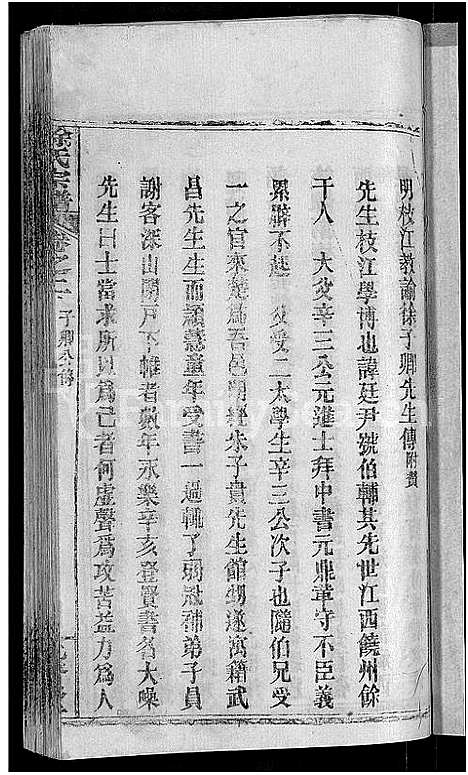 明枝江教諭徐子卿先生傳附贊
先生枝江學博也諱廷尹號伯輔其先世江西饒州餘
干人 大父辛三公元進士拜中書元鼎革守不臣義
累辭不起 父受二太學生辛三公次子也隨伯兄受
一之官來楚為吾邑明經朱子貴先生館甥遂寓籍武
昌先生生而穎慧童年受書一過輒了弱冠補弟子員
謝客深山閉戶下帷者數年永樂辛亥登賢書名大噪
先生曰士當求所以為己者何虛聲為攻苦益力為人
徐氏宗譜 卷之二 子卿公傳
FamilySearch